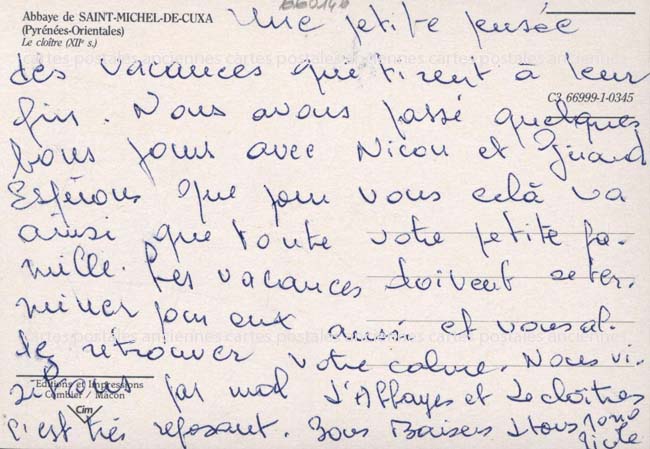 Abbaye de SAINT-MICHEL-DE-CUXA
(Pyrénées-Orientales)
Le cloître (XIIᵉ s.)
Une petite pensée
des vacances que tirent a leur
C3 66999-1-0345
fin. Nous avons passé quelques
bons jours avec Nicou et
Espérons que pour vous celà va
ainsi que toute votre petite fa-
mille. Les vacances doivent se ter.
miner pour eux aussi et vous al.
lez retrouver votre calme. Nous vi.
Editions et Impressions
Combier / Macon
Cim
sitons pas mal d'Abbayes et de cloîtres
c'est très reposant. Bons Baisers à tous
cartes postales anciennes cartes postales anciennes cartes postales anciennes
cartes postales anciennes cartes postales anciennes cartes postales anciennes